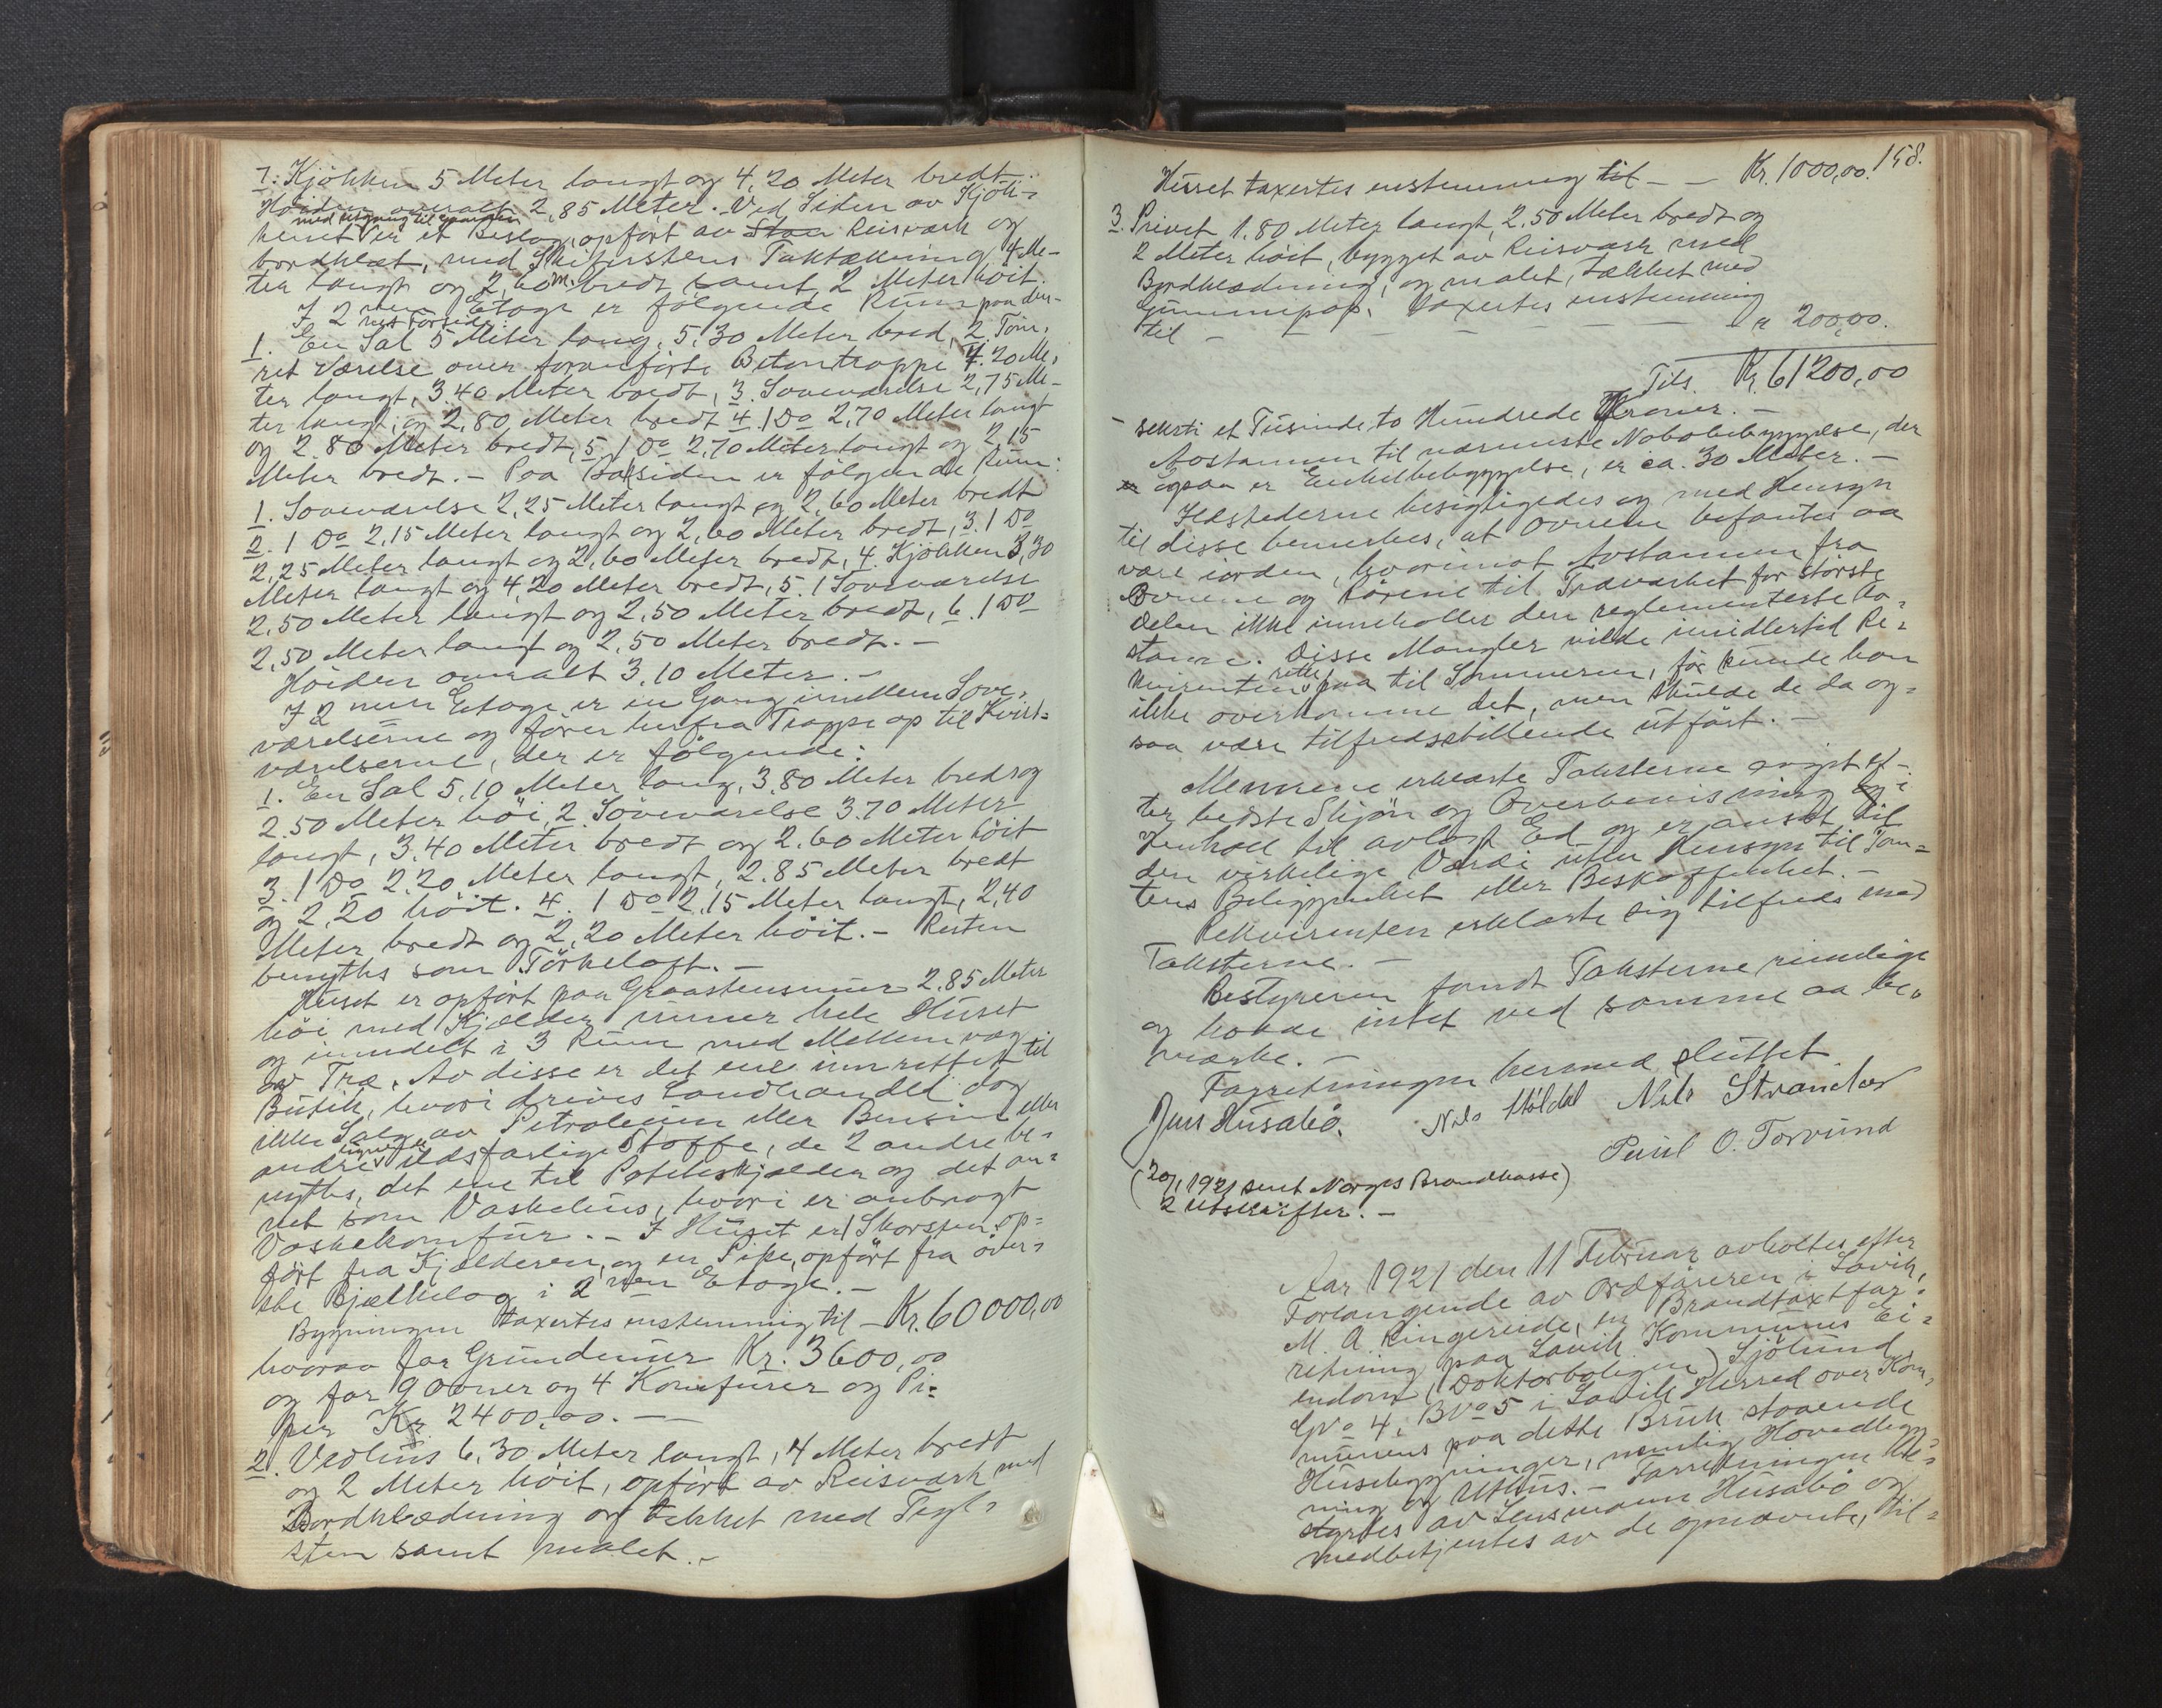 7. Kjökken 5 Meter langt og 4,20 Meter bredt.
Höiden overalt 2,85 Meter. Ved Siden av Kjök-
med utgang til gangen
kenet er et Beslag opfört av Staa Reisværk og
bordklæt, med Skifersteins Taktækning 4 Me-
ter langt og 2,60 m. bredt samt 2 Meter höit.
I 2 nen Etage er fölgende Rum paa den-
nes Forside:
1. En Sal 5 Meter lang, 5,30 Meter bred, 2. Töm-
ret Værelse over foranförte Betontrappe 4.20 Me-
ter langt, 3.40 Meter bredt, 3. Soveværelse 2,75 Me-
ter langt og 2,80 Meter bredt 4. 1 Do 2,70 Meter langt
og 2.80 Meter bredt, 5. 1 Do 2,70 Meter langt og 2,15
Meter bredt. - Paa Baksiden er fölgende Rum:
1. Soveværelse 2,25 Meter langt og 2,60 Meter bredt
2. 1 Do 2,15 Meter langt og 2,60 Meter bredt, 3. 1 Do
2,25 Meter langt og 2,60 Meter bredt, 4. Kjökken 3,30
Meter langt og 4,20 Meter bredt, 5. 1 Soveværelse
2,50 Meter langt og 2,50 Meter bredt, 6. 1 Do
2,50 Meter langt og 2,50 Meter bredt. -
Höiden overalt 3,10 Meter. -
I 2 nen Etage er en Gang imellem Sove-
værelserne og förer herfra Trappe op til Kvist-
værelserne, der er fölgende:
1. En Sal 5,10 Meter lang, 3,80 Meter bred og
2.50 Meter höi, 2. Soveværelse 3.70 Meter
langt, 3.40 Meter bredt og 2.60 Meter höit
3. 1 Do 2.20 Meter langt, 2.85 Meter bredt
og 2,20 höit. 4. 1 Do 2,15 Meter langt, 2,40
Meter bredt og 2,20 Meter höit. - Resten
benyttes som Törkeloft. -
Huset er opfört paa Graastensmur 2.85 Meter
höi med Kjelder under hele Huset
og inndelt i 3 Rum med Mellemvæg
av Træ. Av disse er det ene innrettet til
Butik, hvori drives Landhandel dog
ikke Salg av Petroleum eller Bensin eller
andre lignende ildsfarlige Stoffe, de 2 andre be-
nyttes, det ene til Potetkjelder og det an-
net som Vaskehus, hvori er anbragt
Vaskekomfur. - I Huset er 1 Skorsten op-
fört fra Kjelderen, og en Pipe, opfört fra över-
ste Bjelkelag i 2 nen Etage. -
Bygningen taxertes enstemmig til - Kr. 60000,00
hvorav for Grundmur Kr. 3600,00
og for 9 Ovner og 4 Komfurer og Pi-
per Kr. 2400,00. -
2. Vedhus 6,30 Meter langt, 4 Meter bredt
og 2 Meter höit, opfört av Reisværk med
Bordklædning og tækket med Tegl-
sten samt malet. -
158.
Huset taxertes enstemmig til - - Kr. 1000,00.
3. Privet 1.80 Meter langt, 2,50 Meter bredt og
2 Meter höit, bygget av Reisværk med
Bordklædning, og malet, tækket med
Gummipap. Taxertes enstemmig
til - - - - - " 200,00.
Tils. Kr. 61200,00
- seksti et Tusinde, to Hundrede Kroner. -
Avstannen til nærmeste Nabobebyggelse, der
ogsaa er Enkelbebyggelse, er ca. 30 Meter. -
Ildstederne besigtigedes og med Hensyn
til disse bemerkes, at Ovnene befantes aa
være iorden, hvorimot Avstannen fra
Ovnene og Rörene til Træverket for störste
Delen ikke inneholler den reglementerte Av-
stann. Disse Mangler vilde imidlertid Re-
kvirenten rette paa til Sommeren, för kunde han
ikke overkomme det, men skulde de da og-
saa være tilfredsstillende utfört. -
Mennene erklærte Taksterne avgit ef-
ter bedste Skjön og Overbevisning og i
Henhold til avlagt Ed og er ansat til
den virkelige Værdi uten Hensyn til Tom-
tens Beliggenhet eller Beskaffenhet. -
Rekvirenten erklærte sig tilfreds med
Taksterne. -
Bestyreren fandt Taksterne rimelige
og havde intet ved samme aa be-
merke. -
Forretningen hermed sluttet
Jens Husabö. Nils Höldal Nils Strandos
Poul O. Torvund
(20/1 1921 sent Norges Brandkasse)
2 Utskrifter. -
Aar 1921 den 11 Februar avholtes efter
Forlangende av Ordföreren i Lavik,
M. A. Ringereide, en Brandtaxtfor-
retning paa Lavik Kommunes Ei-
endom (Doktorboligen) Sjölund
Gno 4, Bno 5 i Lavik Herred over Kom-
munens paa dette Bruk staaende
Husebygninger, nemlig Hovedbyg-
ning og Uthus. - Forretningen be-
styrtes av Lensmann Husabö og
medbetjentes av de opnævnte, til-